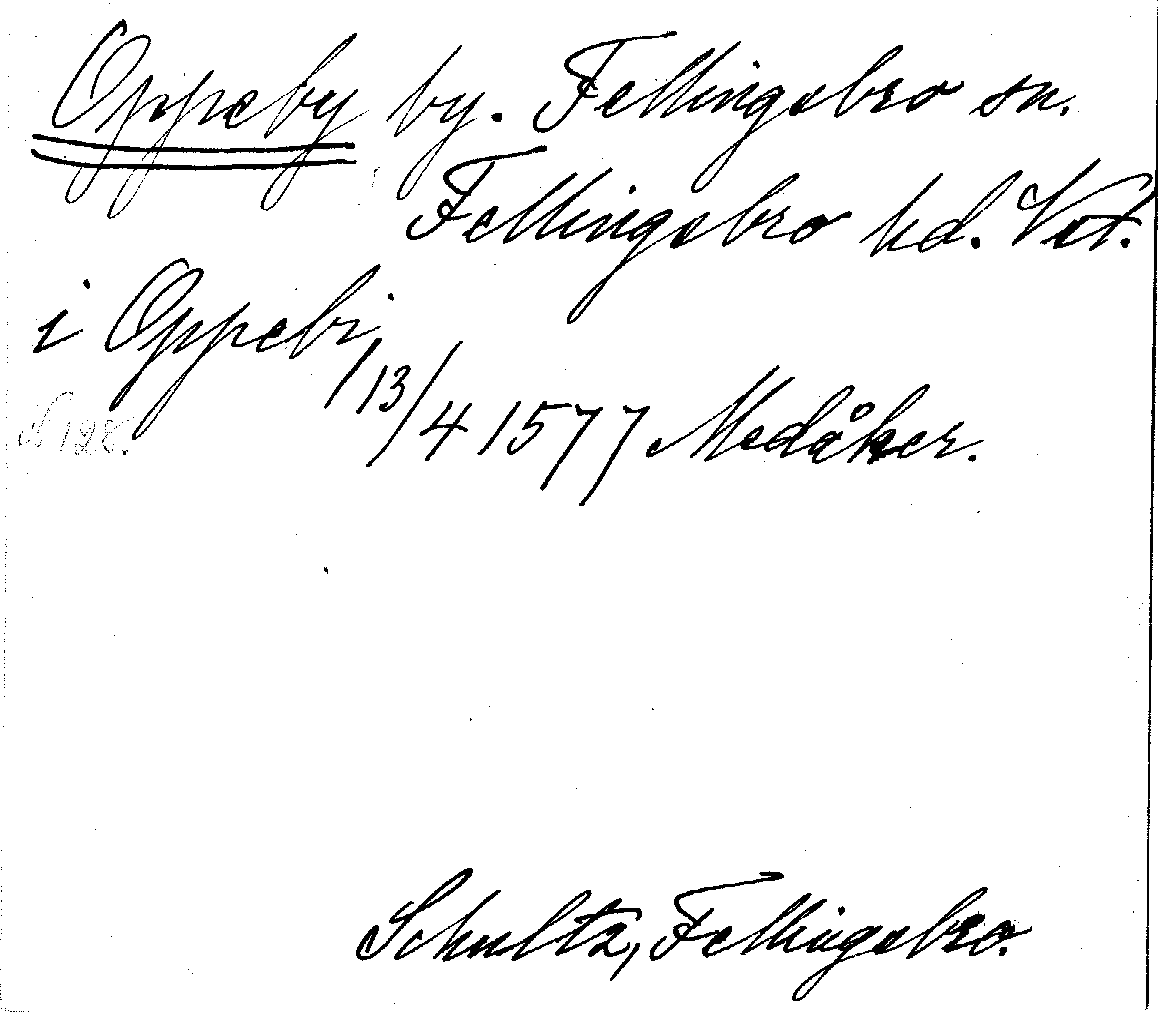 Oppeby by. Fellingsbro sn.
Fellingsbro hd. Vst.
i Oppebi
/13/4 1577 Medåker.
S 128.
Schultz, Fellingsbro.